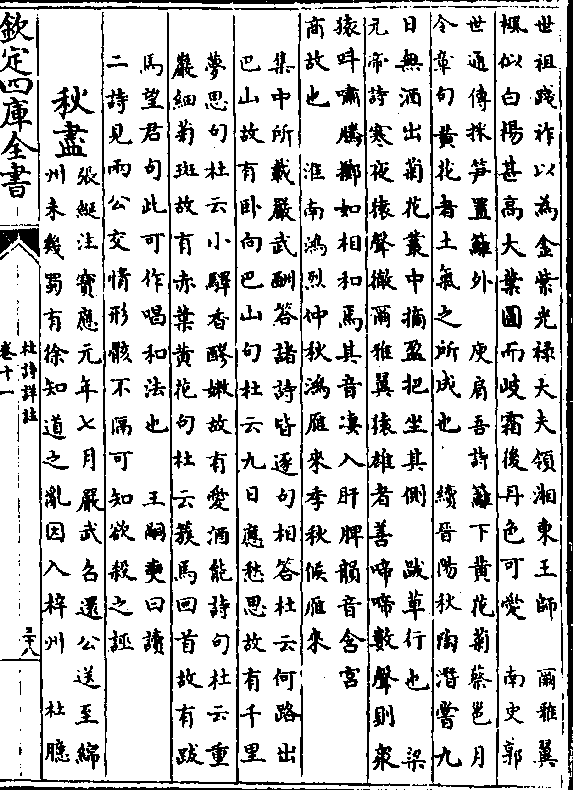 世祖踐祚以為金紫光祿大夫領湘東王師　爾雅翼
楓似白楊甚高大葉圓而岐霜後丹色可愛　南史郭
世通傳採笋置籬外　庾肩吾詩籬下黃花菊蔡邕月
令章句黃花者土氣之所成也　續晉陽秋陶潛嘗九
日無酒出菊花叢中摘盈把坐其側　跋草行也　梁
元帝詩寒夜猿聲徹爾雅翼猿雄者善啼啼數聲則衆
猿呌嘯騰擲如相和焉其音凄入肝脾韻音含宮
商故也　淮南鴻烈仲秋鴻雁來季秋候雁來
集中所載嚴武酬答諸詩皆逐句相答杜云何路出
巴山故有卧向巴山句杜云九日應愁思故有千里
夢思句杜云小驛香醪嫩故有愛酒能詩句杜云重
巖細菊斑故有赤葉黃花句杜云蔟馬回首故有跋
馬望君句此可作唱和法也　王嗣奭曰讀
二詩見兩公交情形骸不隔可知欲殺之誣
秋盡
張綖注寶應元年七月嚴武召還公送至綿
州未幾蜀有徐知道之亂因入梓州　杜臆
欽定四庫全書
杜詩詳註
卷十一
三十八